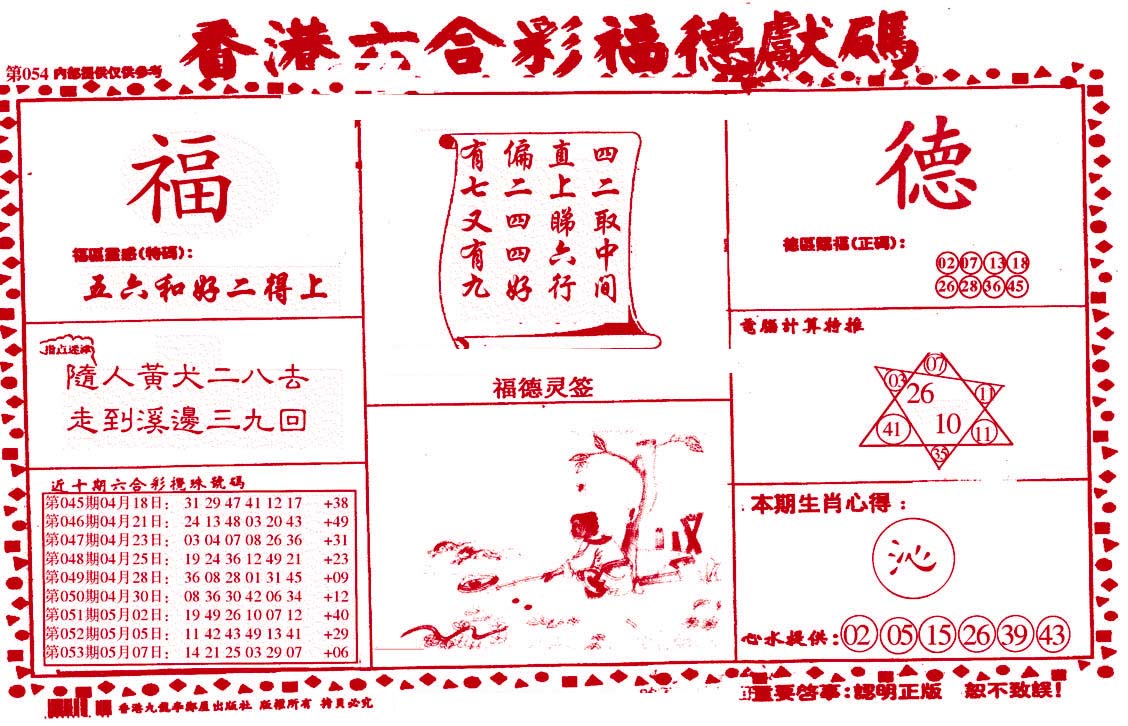 香港六合彩福德獻碼
第054 內部提供仅供參考
福
福區靈感(特碼):
五六和好二得上
指点迷津
隨人黃犬二八去
走到溪邊三九回
近十期六合彩攪珠號碼
第045期04月18日: 31 29 47 41 12 17 +38
第046期04月21日: 24 13 48 03 20 43 +49
第047期04月23日: 03 04 07 08 26 36 +31
第048期04月25日: 19 24 36 12 49 21 +23
第049期04月28日: 36 08 28 01 31 45 +09
第050期04月30日: 08 36 30 42 06 34 +12
第051期05月02日: 19 49 26 10 07 12 +40
第052期05月05日: 11 42 43 49 13 41 +29
第053期05月07日: 14 21 25 03 29 07 +06
四二取中间
直上睇六行
偏二四四好
有七又有九
福德灵签
德
德區賜福(正碼):
02 07 13 18
26 28 36 45
電腦計算特推
07
03
26
11
41
10
11
35
本期生肖心得:
沁
心水提供: 02 05 15 26 39 43
香港九龍華鄰屋出版社 版權所有 拷貝必究
重要啓事:認明正版 恕不致誤!